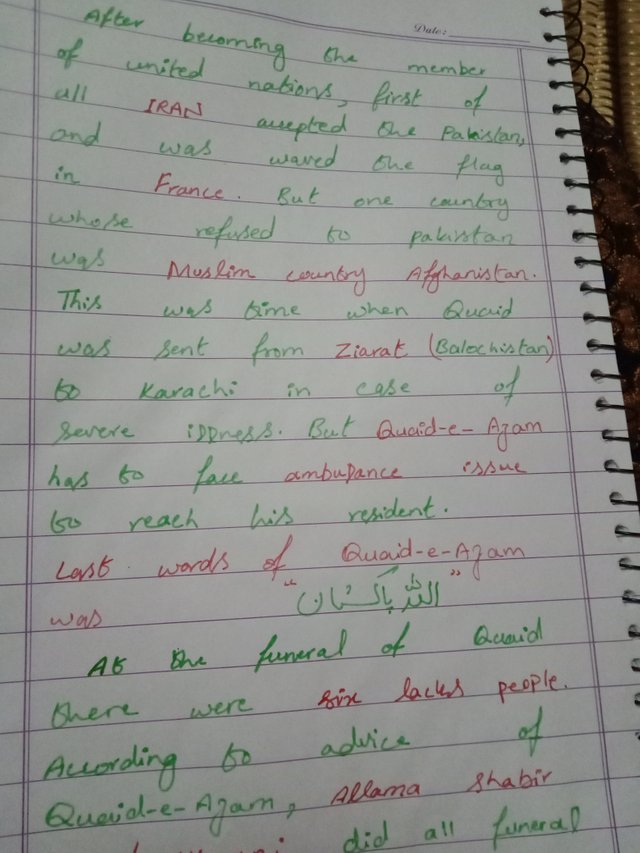 Date:
After becoming the member
of united nations, first of
all IRAN accepted the Pakistan,
and was waved the flag
in France. But one country
whose refused to pakistan
was Muslim country Afghanistan.
This was time when Quaid
was sent from Ziarat (Balochistan)
to Karachi in case of
severe illness. But Quaid-e-Azam
has to face ambulance issue
to reach his resident.
Last words of Quaid-e-Azam
was "اللہ پاکستان"
At the funeral of Quaid
there were six lacks people.
According to advice of
Quaid-e-Azam, Allama Shabir
did all funeral